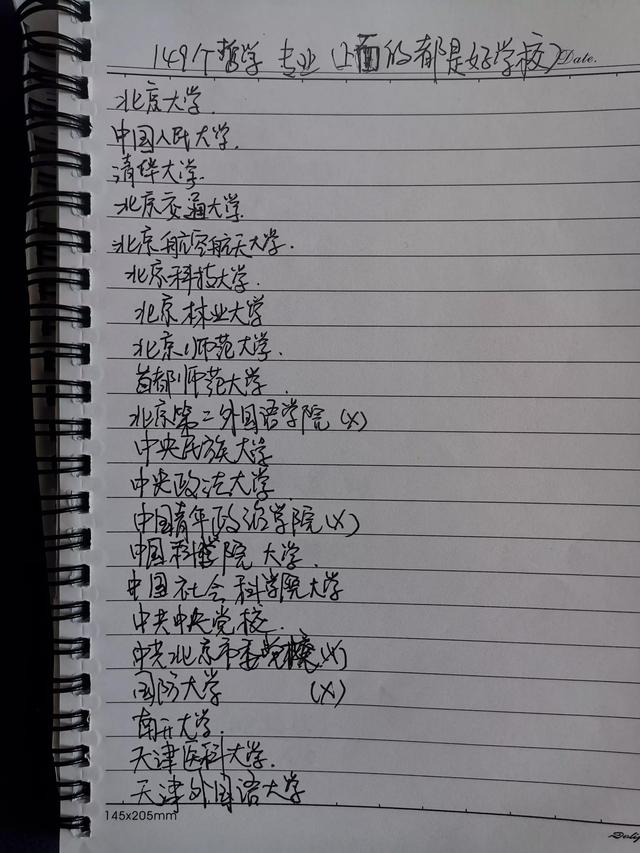 149个哲学专业(上面的都是好学校)
Date.
北京大学.
中国人民大学.
清华大学.
北京交通大学.
北京航空航天大学.
北京科技大学.
北京林业大学
北京师范大学.
首都师范大学.
北京第二外国语学院(X)
中央民族大学
中央政法大学
中国青年政治学院(X)
中国科学院大学.
中国社会科学院大学
中共中央党校.
中共北京市委党校(X)
国防大学 (X)
南开大学.
天津医科大学.
天津外国语大学
145x205mm